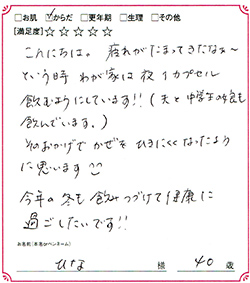 □お肌 ☑からだ □更年期 □生理 □その他
[満足度]☆☆☆☆☆
こんにちは。疲れがたまってきたなぁ〜
という時 わが家は夜1カプセル
飲むようにしています!!(夫と中学生の娘も
飲んでいます。)
そのおかげで かぜを ひきにくくなったよう
に思います
今年の冬も飲みつづけて健康に
過ごしたいです!!
お名前(本名orペンネーム)
ひな 様 40 歳